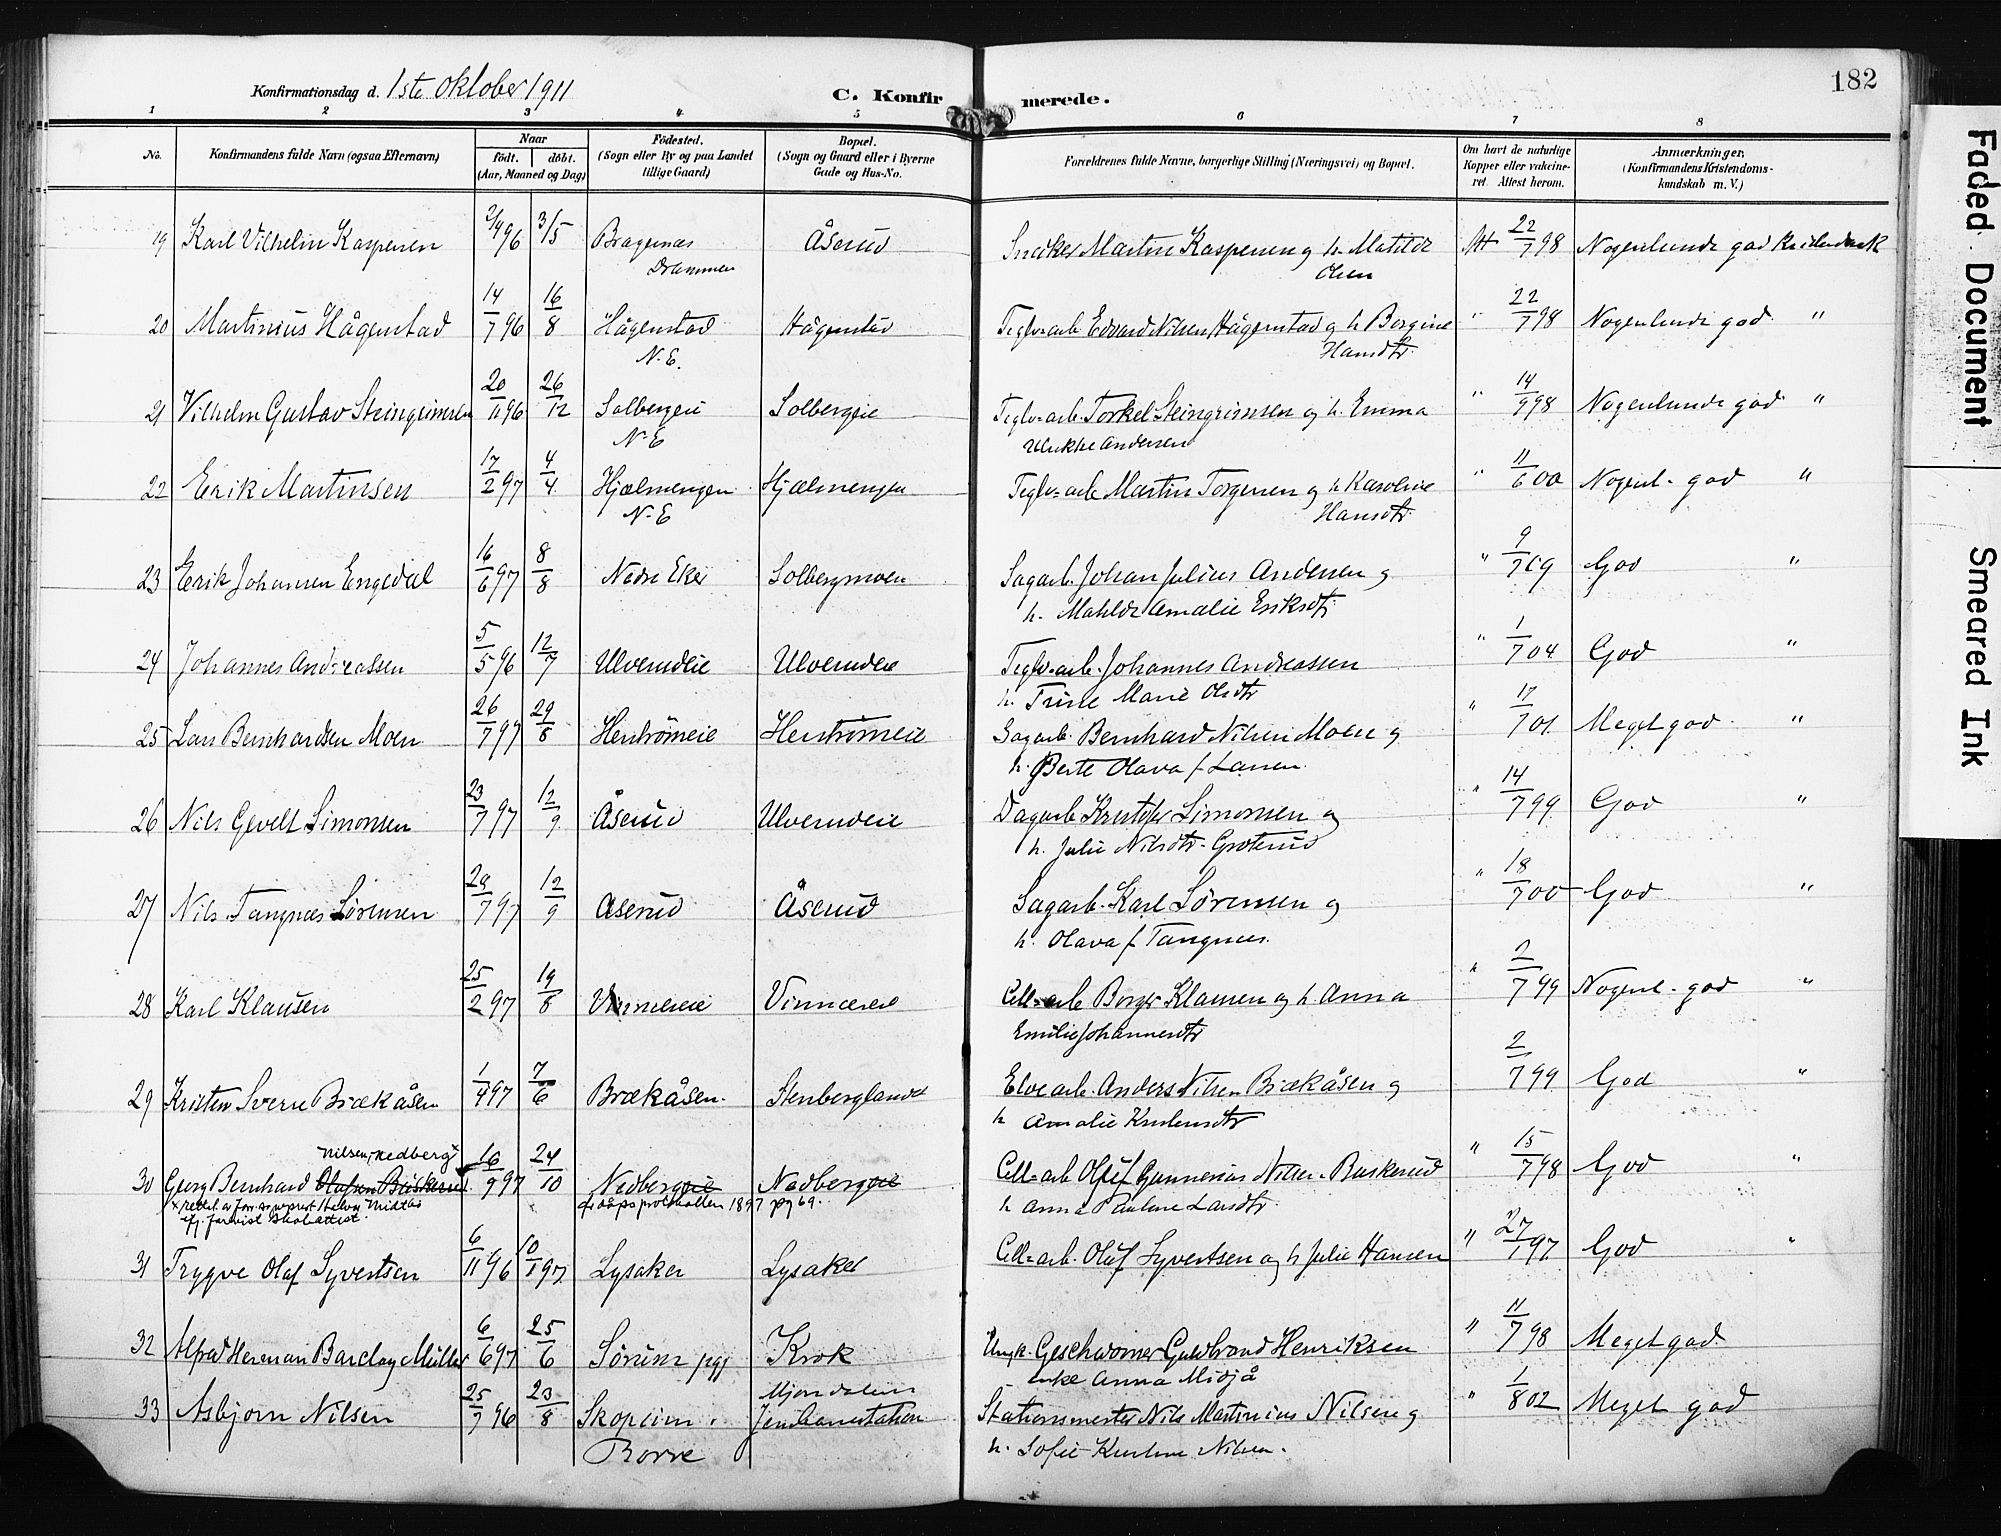 182
Konfirmationsdag d. 1ste Oktober 1911
C. Konfirmerede.
1 2 3 4 5 6 7 8
No. Konfirmandens fulde Navn (ogsaa Efternavn) Naar født. døbt. (Aar, Maaned og Dag) Fødested. (Sogn eller By og paa Landet tillige Gaard) Bopæl. (Sogn og Gaard eller i Byerne Gade og Hus-No. Forældrenes fulde Navne, borgerlige Stilling (Næringsvei) og Bopæl. Om havt de naturlige Kopper eller vakcineret. Attest herom. Anmærkninger, (Konfirmandens Kristendomskundskab m. V.)
19 Karl Vilhelm Kaspersen 2/4 96 3/5 Bragernæs Åserud Snekker Martin Kaspersen og h. Matilde Att 22/7 98 Nogenlunde god
Drammen Olsen
20 Martinius Hågenstad 14/7 96 16/8 Hågenstad Hågenstad Teglv-arb. Edvard Nilsen Hågenstad og h Borgine " 22/7 98 Nogenlunde god "
N.E. Hansdtr.
21 Vilhelm Gustav Steingrimsen 20/11 96 26/12 Solbergeie Solbergeie Teglv-arb. Torkel Steingrimsen og h. Emma " 14/9 98 Nogenlunde god "
N-E Ulrikke Andersen
22 Erik Martinsen 17/2 97 4/4 Hjælmengen Hjælmengen Teglv-arb Martin Torgersen og h Karoline " 11/6 00 Nogenl- god "
N-E Hansdtr.
23 Erik Johansen Engedal 16/6 97 8/8 Nedre Eker Solbergmoen Sagarb. Johan Julius Andersen og " 9/7 09 God "
h. Mathilde Amalie Eriksdtr.
24 Johannes Andreassen 5/5 96 12/7 Ulverudeie Ulverudeie Teglv-arb. Johannes Andreassen " 1/7 04 God "
h. Trine Marie Olsdtr
25 Lars Bernhardsen Moen 26/7 97 29/8 Henstrømeie Henstrømeie Sagarb. Bernhard Nilsen Moen og " 17/7 01 Meget god "
h. Berte Olava f. Larsen
26 Nils Gevelt Simonsen 23/7 97 12/9 Åserud Ulverudeie Dagarb Kristofer Simonsen og " 14/7 99 God "
h. Julie Nilsdtr. Grøterud
27 Nils Tangnæs Sørensen 29/7 97 12/9 Åserud Åserud Sagarb. Karl Sørensen og " 18/7 00 God "
h. Olava f. Tangnæs.
28 Karl Klausen 25/2 97 19/8 Vinnæseie Vinnæseie Cell-arb Borger Klausen og h. Anna " 2/7 99 Nogenl- god "
Emilie Johannesdtr
29 Kristen Sverre Brækåsen 1/4 97 7/6 Brækåsen. Stenberglandet Elvearb. Anders Nilsen Brækåsen og 2/7 99 God "
h Amalie Kristensdtr
Nilsen, Nedberg
30 Georg Bernhard Olafsen Buskerud 16/9 97 24/10 Nedbergeie Nedbergeie Cell-arb Oluf Gunnerius Nilsen Buskerud " 15/7 98 God "
x rettet av
ifj. forevist dåbsattest. dåpsprotokollen 1897 pg 69. h Anna Pauline Larsdtr.
31 Trygve Olaf Syvertsen 6/11 96 10/1 97 Lysaker Lysaker Cell-arb. Oluf Syvertsen og h Julie Hansen " 27/1 97 God "
32 Alfred Herman Barclay Müller 6/6 97 25/6 Sørum pgj Krok Ungk. Geschworner Guldbrand Henriksen " 11/7 98 Meget god
enke Anna Midjå
33 Asbjørn Nilsen 25/7 96 23/8 Skoprim Mjøndalen Stationsmester Nils Martinius Nilsen og " 1/8 02 Meget god
Borre Jernbanestation h. Sofie Kristine Nilsen.
Faded Document
Smeared Ink